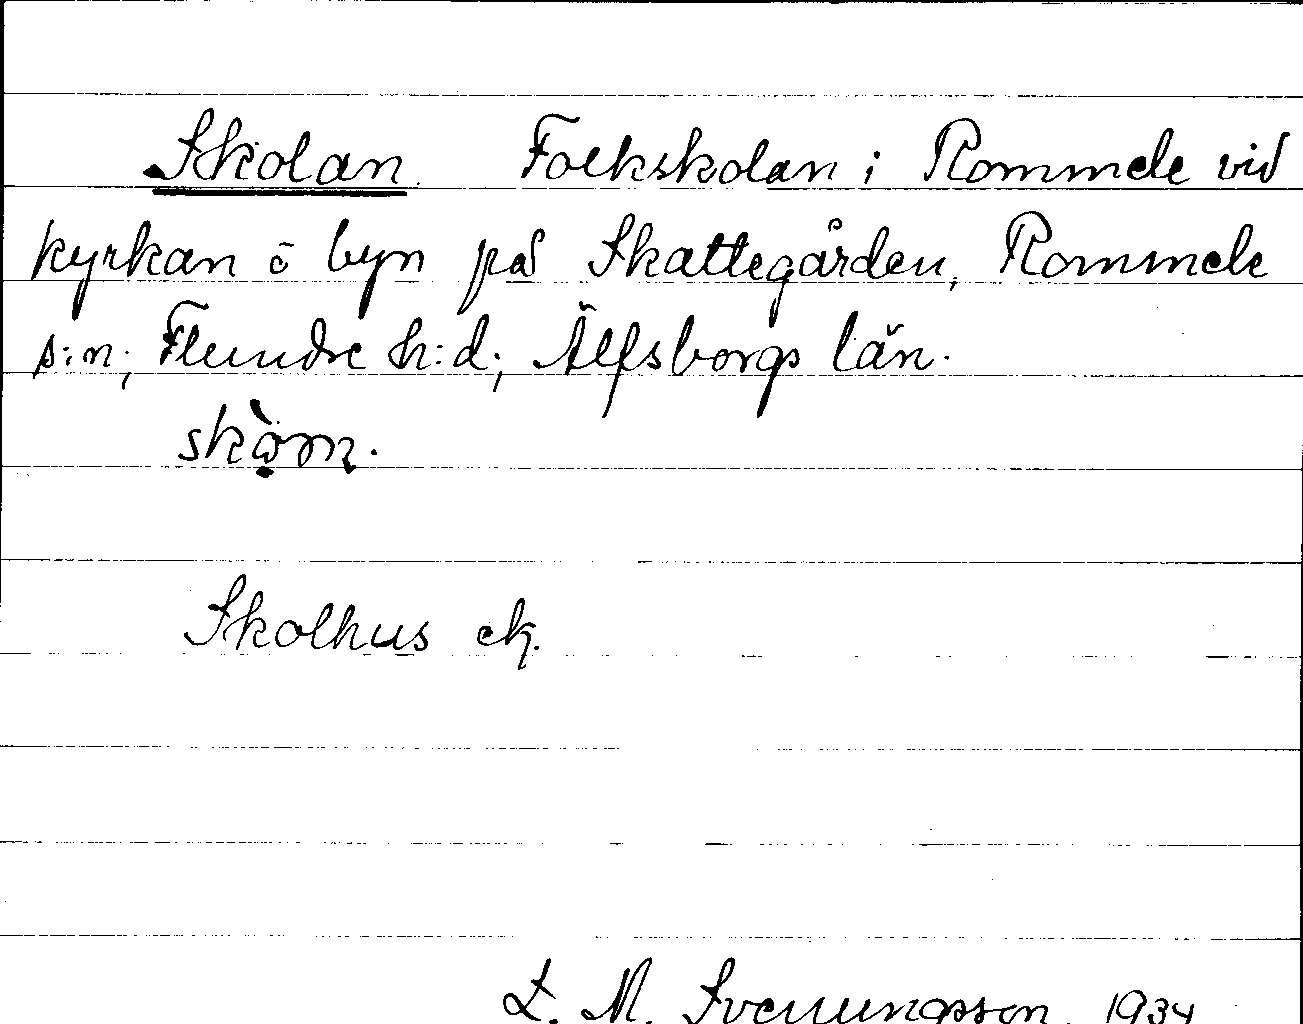 Skolan. Folkskolan i Rommele vid
kyrkan o byn på Skattegården, Rommele
s:n; Flundre h:d; Älfsborgs län.
Skolhus ek.
L. M. Svenungsson. 1934